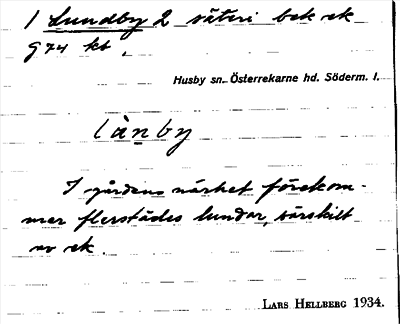 1 Lundby 2 säteri bek ek
974 kt.
Husby sn. Österrekarne hd. Söderm. l.
lànby
I gårdens närhet förekom-
mer flerstädes lundar, särskilt
av ek.
LARS HELLBERG 1934.